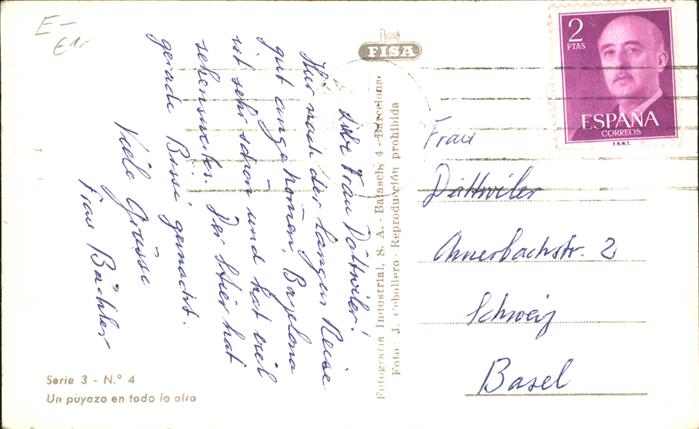 E-
FISA
Liebe Frau Dättwiler!
Hier nach der langen Reise
gut angekommen. Barzlona
ist sehr schön und hat viel
sehenswertes. Der Stier hat
gerade Bissi gemacht.
Viele Grüsse
Frau Bächler
Serie 3 - N.º 4
Un puyazo en todo lo alto
Fotogra Industrial, S. A. - Balasch, 4 - Barcelona
Foto: J. Cebollero - Reproducción prohibida
2
PTAS
ESPAÑA
CORREOS
F.N.M.T.
Frau
Dättwiler
Amerbachstr. 2
Schweiz
Basel